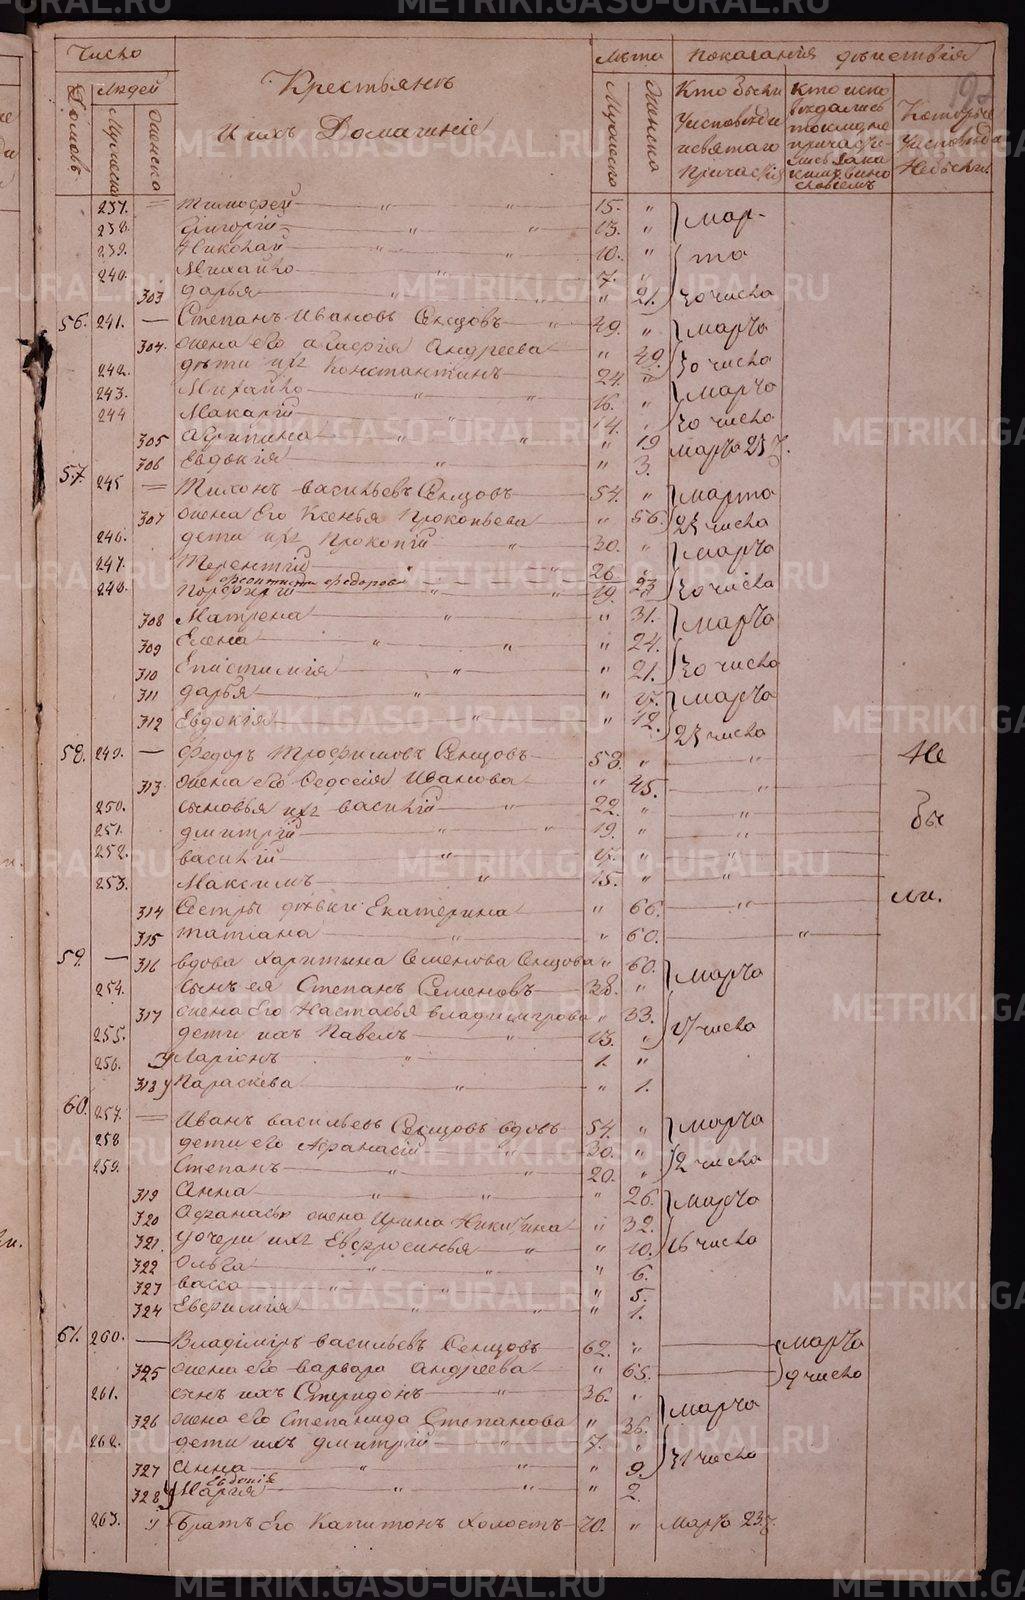 Число
Людей
Домовъ
Мужеска
Женска
Крестьянъ
И ихъ Домашніе
Лѣта
Мужеско
Женско
Показанія дѣйствія
Кто были
У исповѣди
и святаго
Причастія
Кто испо
вѣдались
токмо, не
причасти-
Которые
У исповѣди
Не были.
237. Тимофей 15.
238. Григорій 13.
239. Николай 10.
240. Михайло 7.
303 Дарья 21.
мар-
та
30 числа
56. 241. Степанъ Ивановъ Сенцовъ 49.
304. жена его Андреева 49.
242. дѣти ихъ Константинъ 24.
243. Михайло 16.
244 Макарій 14.
305 Агрипина 19
306 Евдокія 3.
марта
30 числа
марта
30 числа
марта 23
57. 245 Тихонъ Васильевъ Сенцовъ 54.
307 жена его Ксенья Прокопьева 56.
246. дети ихъ Прокопій 30.
247. Терентій 26
Федорова 23
248. Порфирій 19.
308 Матрена 31.
309 Елена 24.
310 Епистимія 21.
311 Дарья 17.
312 Евдокія 12.
марта
23 числа
марта
30 числа
марта
30 числа
марта
23 числа
58. 249. Федоръ Трофимовъ Сенцовъ 58.
313 жена его Федосія Иванова 45.
250. сыновья ихъ Василій 22.
251. Дмитрій 19.
252. Василій 17.
253. Максимъ 15.
314 Сестры дѣвки Екатерина 66.
315 Татіана 60.
Не
бы
ли.
59. 316 вдова Харитина Семенова Сенцова 60.
254. сынъ ея Степанъ Семеновъ 38.
317 жена его Настасья Владимірова 33.
255. дети ихъ Павелъ 13.
256. Ларіонъ 1.
318 Параскева 1.
марта
17 числа
60. 257. Иванъ Васильевъ Сенцовъ вдовъ 54.
258 дети его Афанасій 30.
259. Степанъ 20.
319 Анна 26.
320 Афанасья жена Ирина Никитина 32.
321. дочери ихъ Евфросинья 10.
322 Ольга 6.
323 Васса 5.
324 Евфимія 1.
марта
2 числа
марта
16 числа
61. 260. Владіміръ Васильевъ Сенцовъ 62.
325 жена его Варвара Андреева 65.
261. сынъ ихъ Спиридонъ 36.
326 жена его Степанида Степанова 36.
262. дети ихъ Дмитрій 7.
327 Анна 9.
Евдокія
328 Марія 2.
263. Братъ его Капитонъ холостъ 20. Марта 23
марта
9 числа
марта
31 числа
METRIKI.GASO-URAL.RU